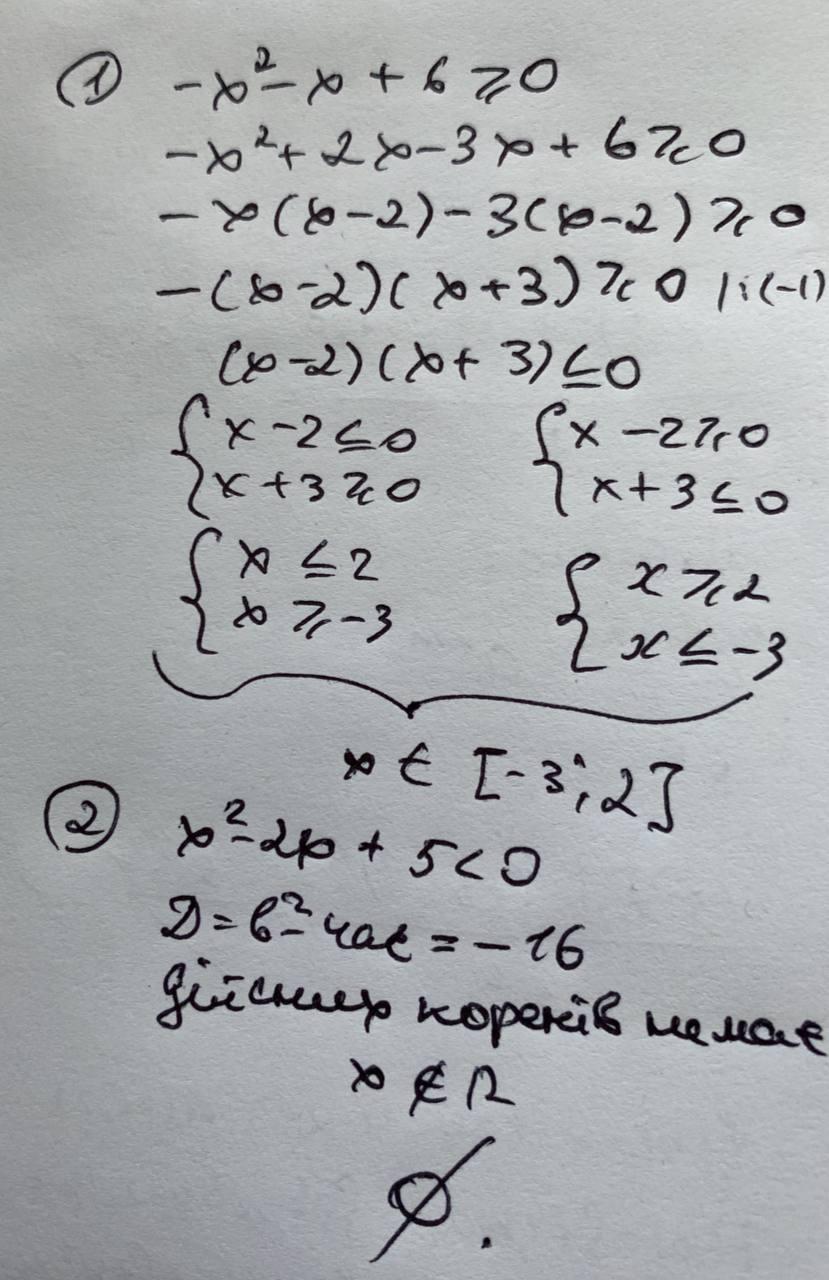 ① -x² - x + 6 ⩾ 0
-x² + 2x - 3x + 6 ⩾ 0
-x(x-2) - 3(x-2) ⩾ 0
-(x-2)(x+3) ⩾ 0 |:(-1)
(x-2)(x+3) ≤ 0
{ x - 2 ≤ 0 { x - 2 ⩾ 0
{ x + 3 ⩾ 0 { x + 3 ≤ 0
{ x ≤ 2 { x ⩾ 2
{ x ⩾ -3 { x ≤ -3
x ∈ [-3; 2]
② x² - 2x + 5 < 0
D = b² - 4ac = -16
дійсних коренів немає
x ∉ R
∅.